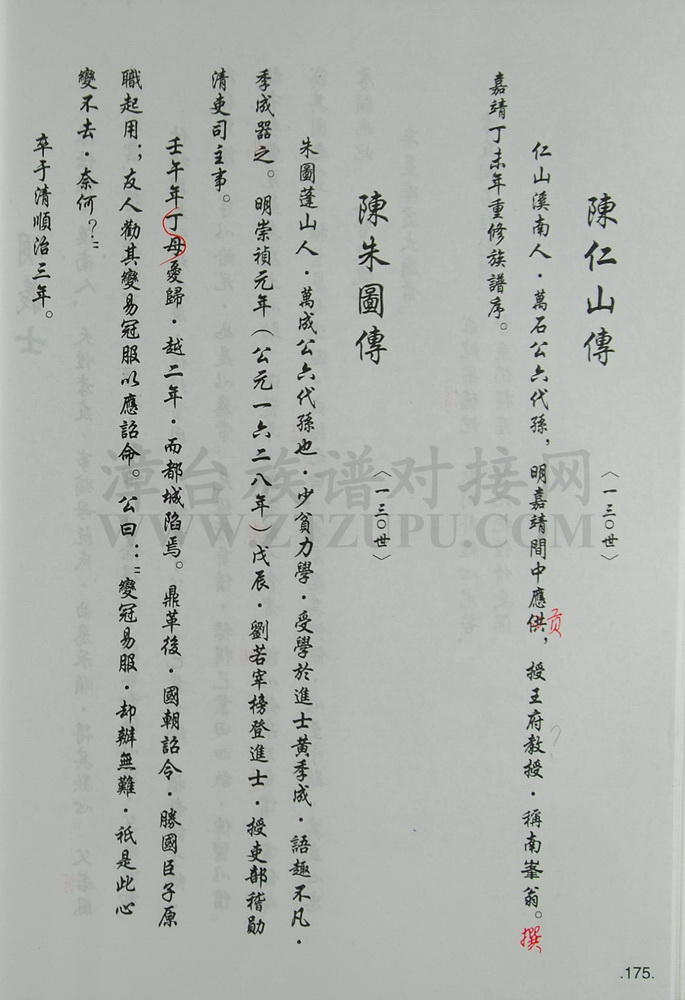 陳仁山傳
〈一三〇世〉
仁山溪南人·萬石公六代孫，明嘉靖間中應供，授王府教授·稱南峯翁。
貢
?
撰
嘉靖丁未年重修族譜序。
陳朱圖傳
〈一三〇世〉
朱圖蓬山人·萬成公六代孫也·少貧力學·受學於進士黃季成·語趣不凡·
季成器之。明崇禎元年（公元一六二八年）戊辰·劉若宰榜登進士·授吏部稽勛
清吏司主事。
壬午年丁母憂歸·越二年·而都城陷焉。鼎革後·國朝詔令·勝國臣子原
職起用；友人勸其變易冠服以應詔命。公曰：〝變冠易服·却辦無難·祇是此心
變不去·奈何？〞
卒于清順治三年。
漳台族谱对接网
WWW.ZTZUPU.COM
.175.